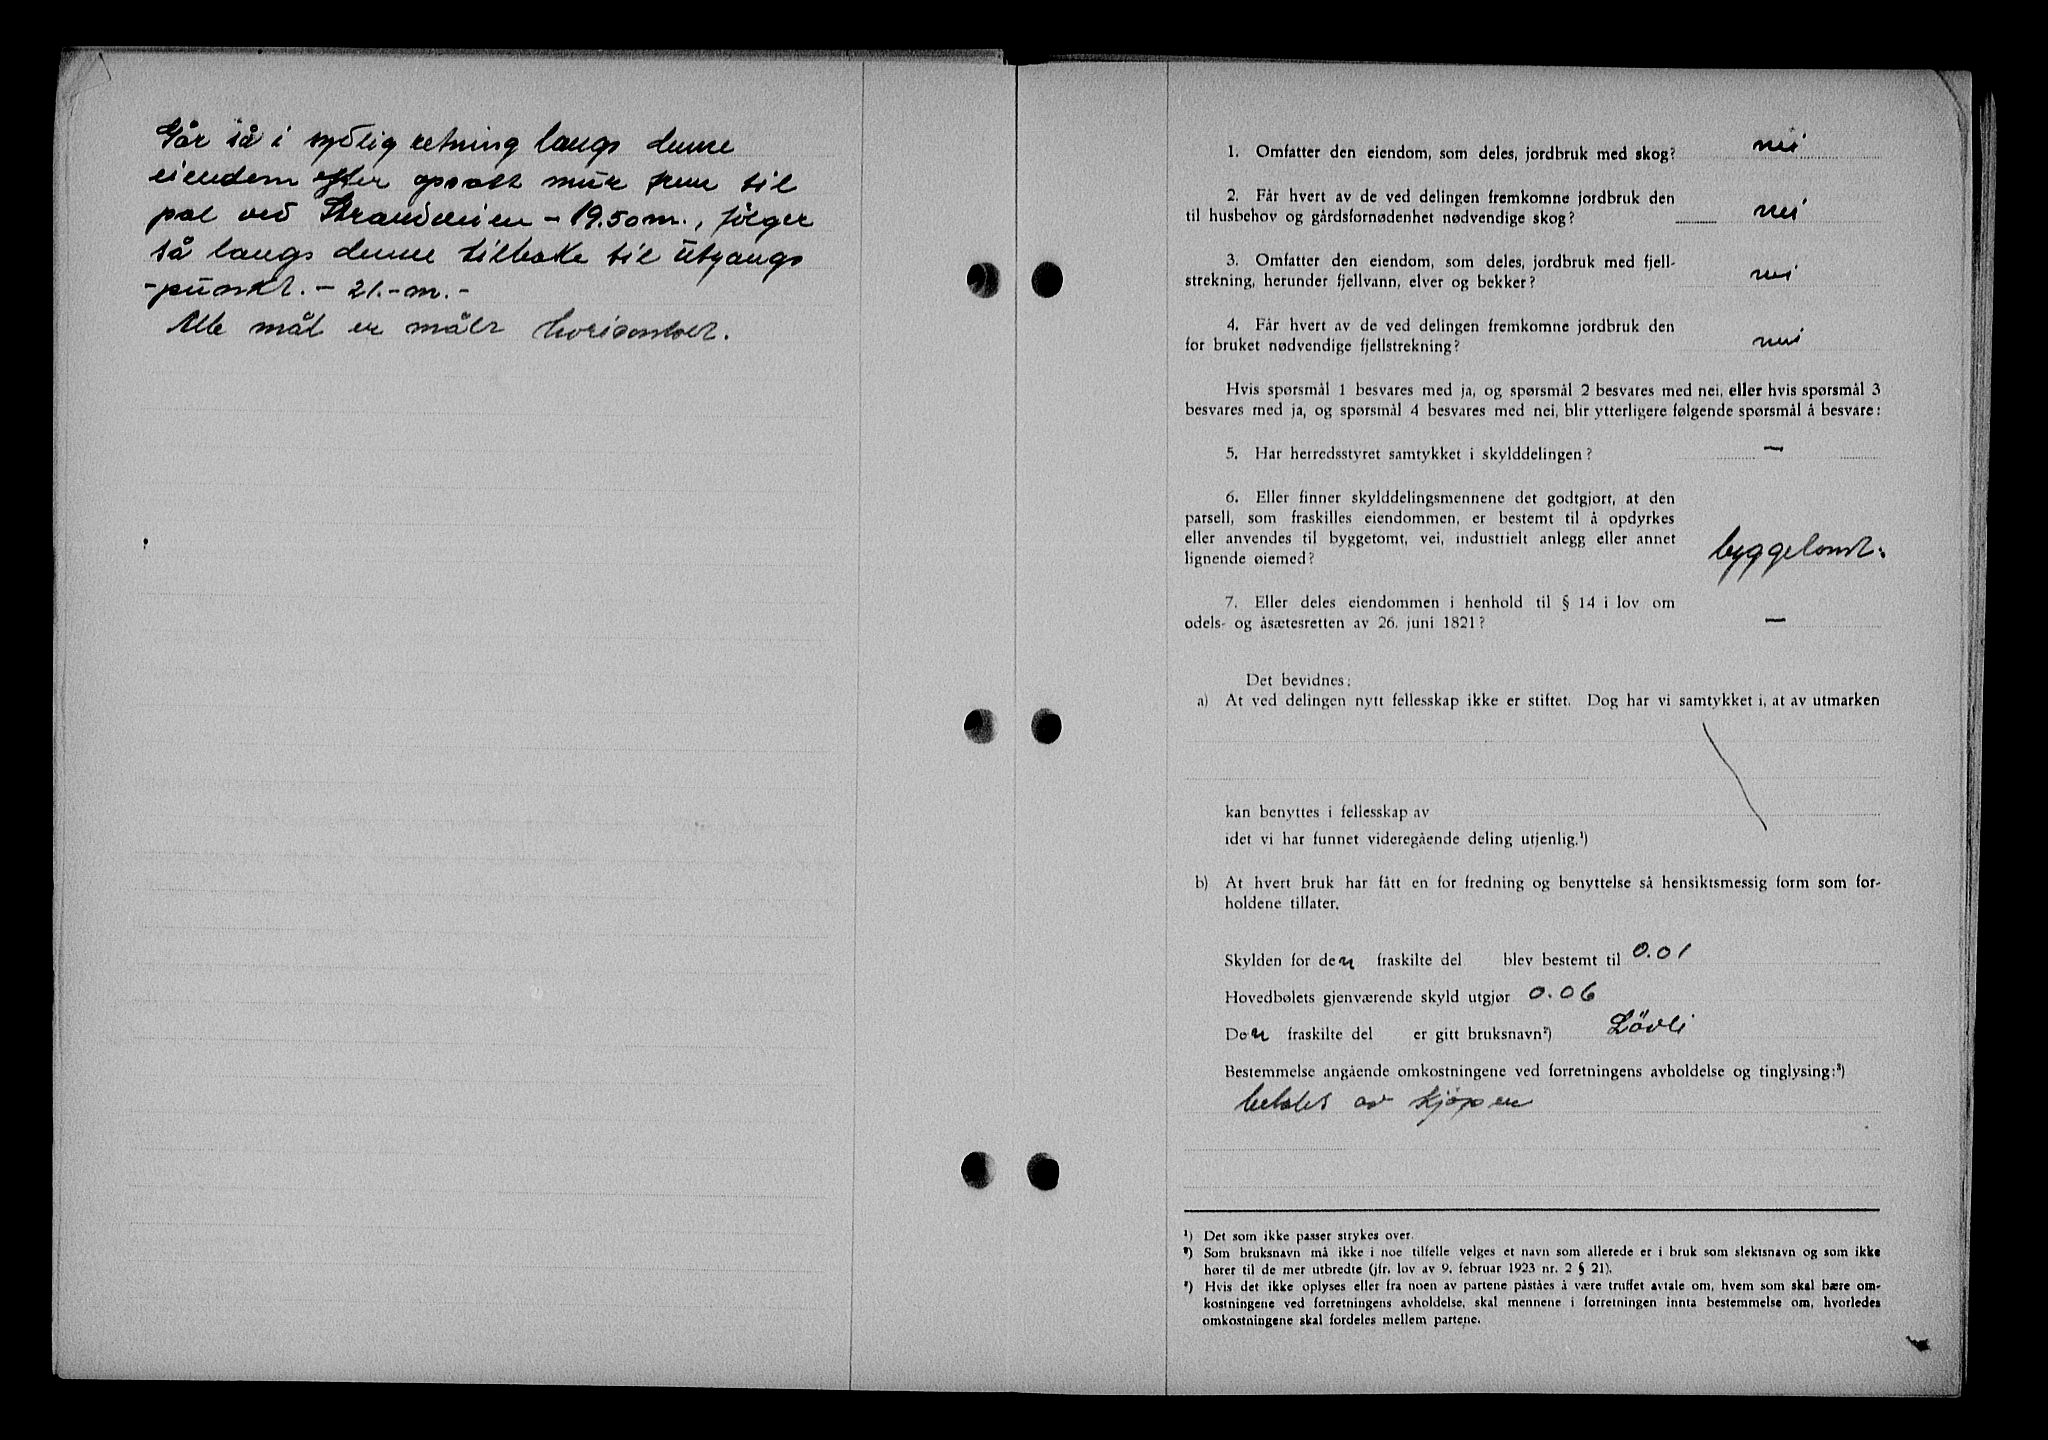 Går så i sydlig retning langs denne
eiendom efter opsatt mur frem til
pæl ved Strandveien - 19.50 m., følger
så langs denne tilbake til utgangs
-punkt. - 21.-m.-
Alle mål er målt horisontalt.
1. Omfatter den eiendom, som deles, jordbruk med skog? nei
2. Får hvert av de ved delingen fremkomne jordbruk den
til husbehov og gårdsfornødenhet nødvendige skog? nei
3. Omfatter den eiendom, som deles, jordbruk med fjell-
strekning, herunder fjellvann, elver og bekker? nei
4. Får hvert av de ved delingen fremkomne jordbruk den
for bruket nødvendige fjellstrekning? nei
Hvis spørsmål 1 besvares med ja, og spørsmål 2 besvares med nei, eller hvis spørsmål 3
besvares med ja, og spørsmål 4 besvares med nei, blir ytterligere følgende spørsmål å besvare:
5. Har herredsstyret samtykket i skylddelingen? —
6. Eller finner skylddelingsmennene det godtgjort, at den
parsell, som fraskilles eiendommen, er bestemt til å opdyrkes
eller anvendes til byggetomt, vei, industrielt anlegg eller annet
lignende øiemed? byggetomt.
7. Eller deles eiendommen i henhold til § 14 i lov om
odels- og åsætesretten av 26. juni 1821? —
Det bevidnes:
a) At ved delingen nytt fellesskap ikke er stiftet. Dog har vi samtykket i, at av utmarken
kan benyttes i fellesskap av
idet vi har funnet videregående deling utjenlig.¹)
b) At hvert bruk har fått en for fredning og benyttelse så hensiktsmessig form som for-
holdene tillater.
Skylden for den fraskilte del blev bestemt til 0.01
Hovedbølets gjenværende skyld utgjør 0.06
Den fraskilte del er gitt bruksnavn²) Lövli
Bestemmelse angående omkostningene ved forretningens avholdelse og tinglysing:³)
betales av kjøperen
¹) Det som ikke passer strykes over.
²) Som bruksnavn må ikke i noe tilfelle velges et navn som allerede er i bruk som slektsnavn og som ikke
hører til de mer utbredte (jfr. lov av 9. februar 1923 nr. 2 § 21).
³) Hvis det ikke oplyses eller fra noen av partene påståes å være truffet avtale om, hvem som skal bære om-
kostningene ved forretningens avholdelse, skal mennene i forretningen innta bestemmelse om, hvorledes
omkostningene skal fordeles mellem partene.